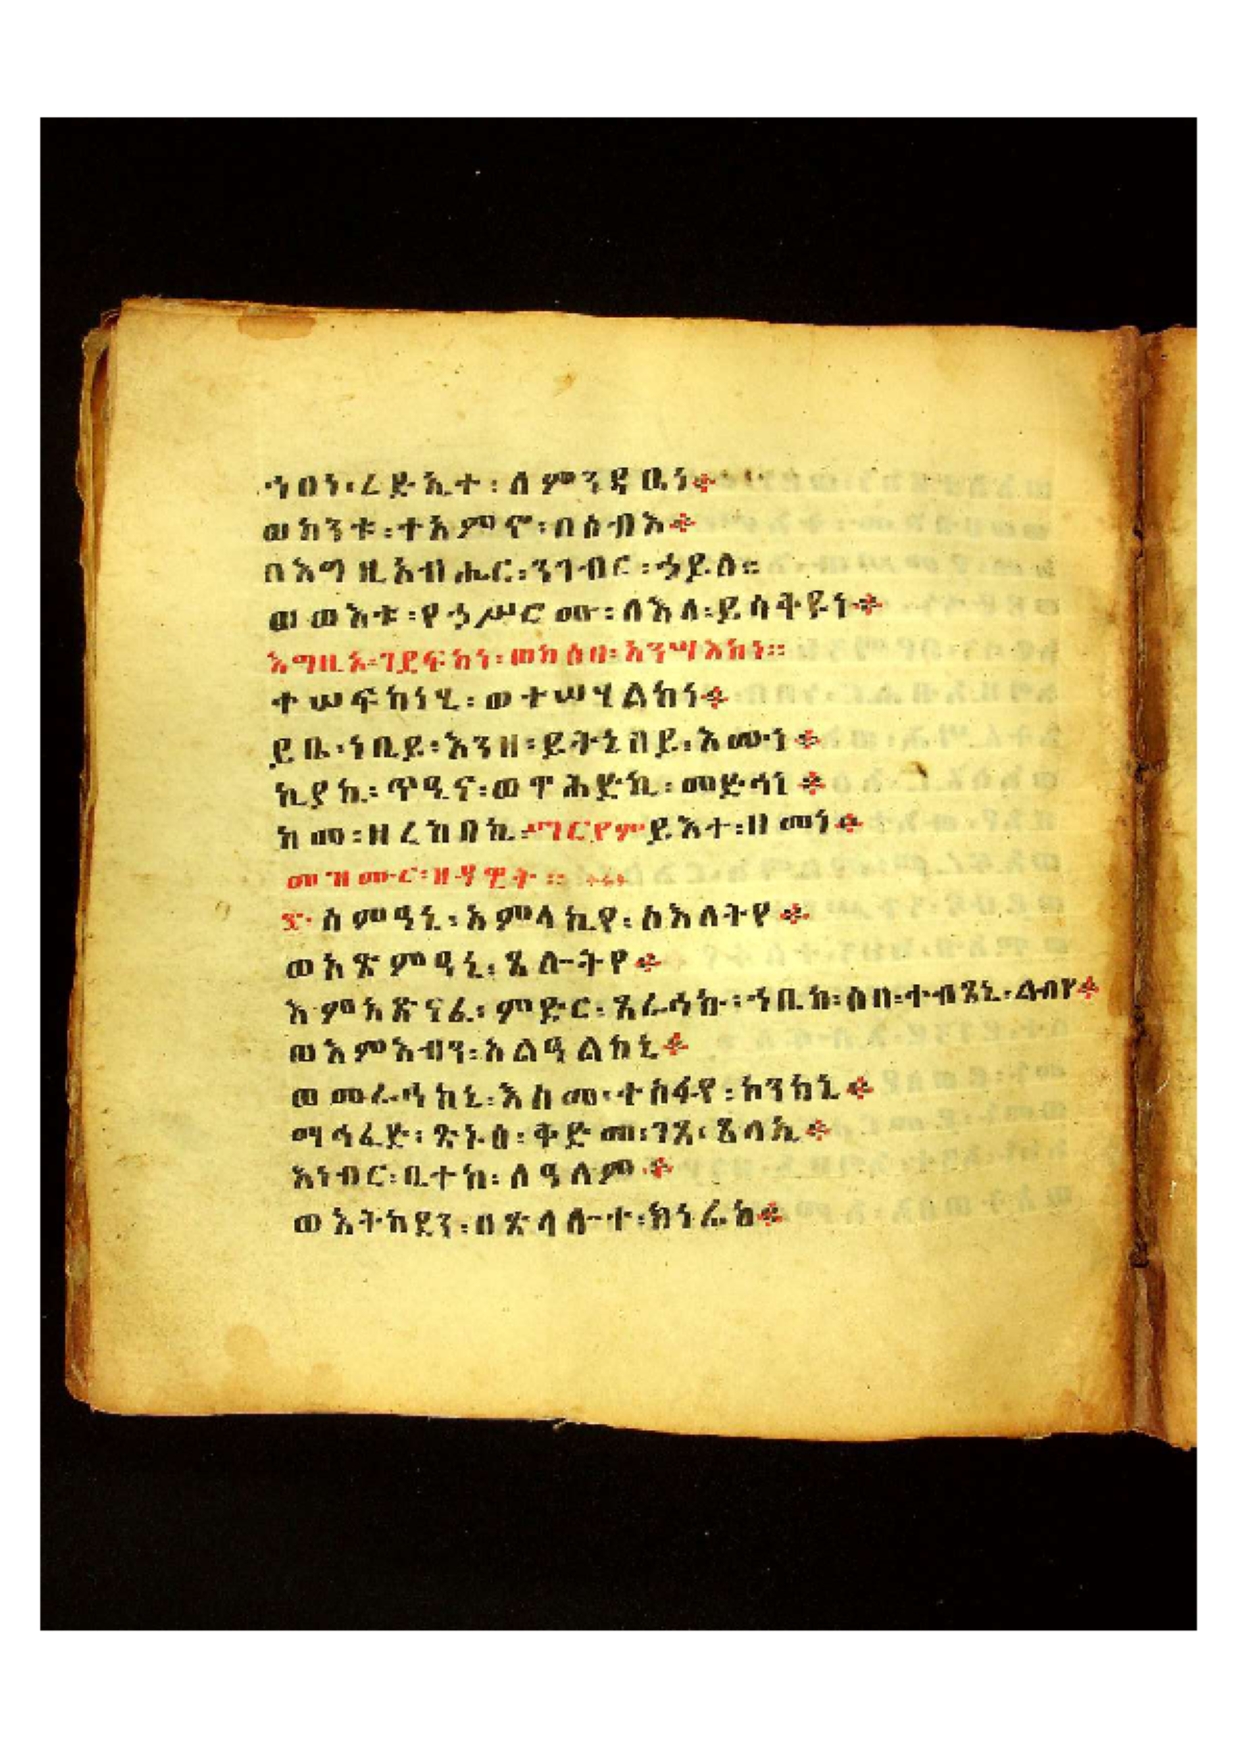 ሀበነ፡ረድኤተ፡ለምንዳቤነ።
ወከንቱ፡ተአምኖ፡በሰብእ።
በእግዚአብሔር፡ንገብር፡ኃይለ።
ወውእቱ፡የኃሥሮሙ፡ለእለ፡ይሳቅዩነ።
እግዚኦ፡ገደፍከነ፡ወከዕበ፡አንሣእከነ።
ተሠፍከነሂ፡ወተሠሃልከነ።
ይቤ፡ነቢይ፡እንዘ፡ይትኔበይ፡እሙነ።
ኪያኪ፡ጥዒና፡ወዋሕድኪ፡መድኃኒ።
ከመ፡ዘረከበኪ፡ማርያም፡ይእተ፡ዘመነ።
መዝሙር፡ዘዳዊት።
፷ ስምዓኒ፡አምላኪየ፡ስእለትየ።
ወአጽምዓኒ፡ጸሎትየ።
እምአጽናፈ፡ምድር፡ጸራኅኩ፡ኀቤከ፡ሶበ፡ተብጸኒ፡ልብየ።
ወእምእብን፡አልዓልከኒ።
ወመራኅከኒ፡እስመ፡ተስፋየ፡ኮንከኒ።
ማኅፈድ፡ጽኑዕ፡ቅድመ፡ገጸ፡ጸላኢ።
እነብር፡ቤተከ፡ለዓለም።
ወእትከደን፡በጽላሎተ፡ክነፊከ።